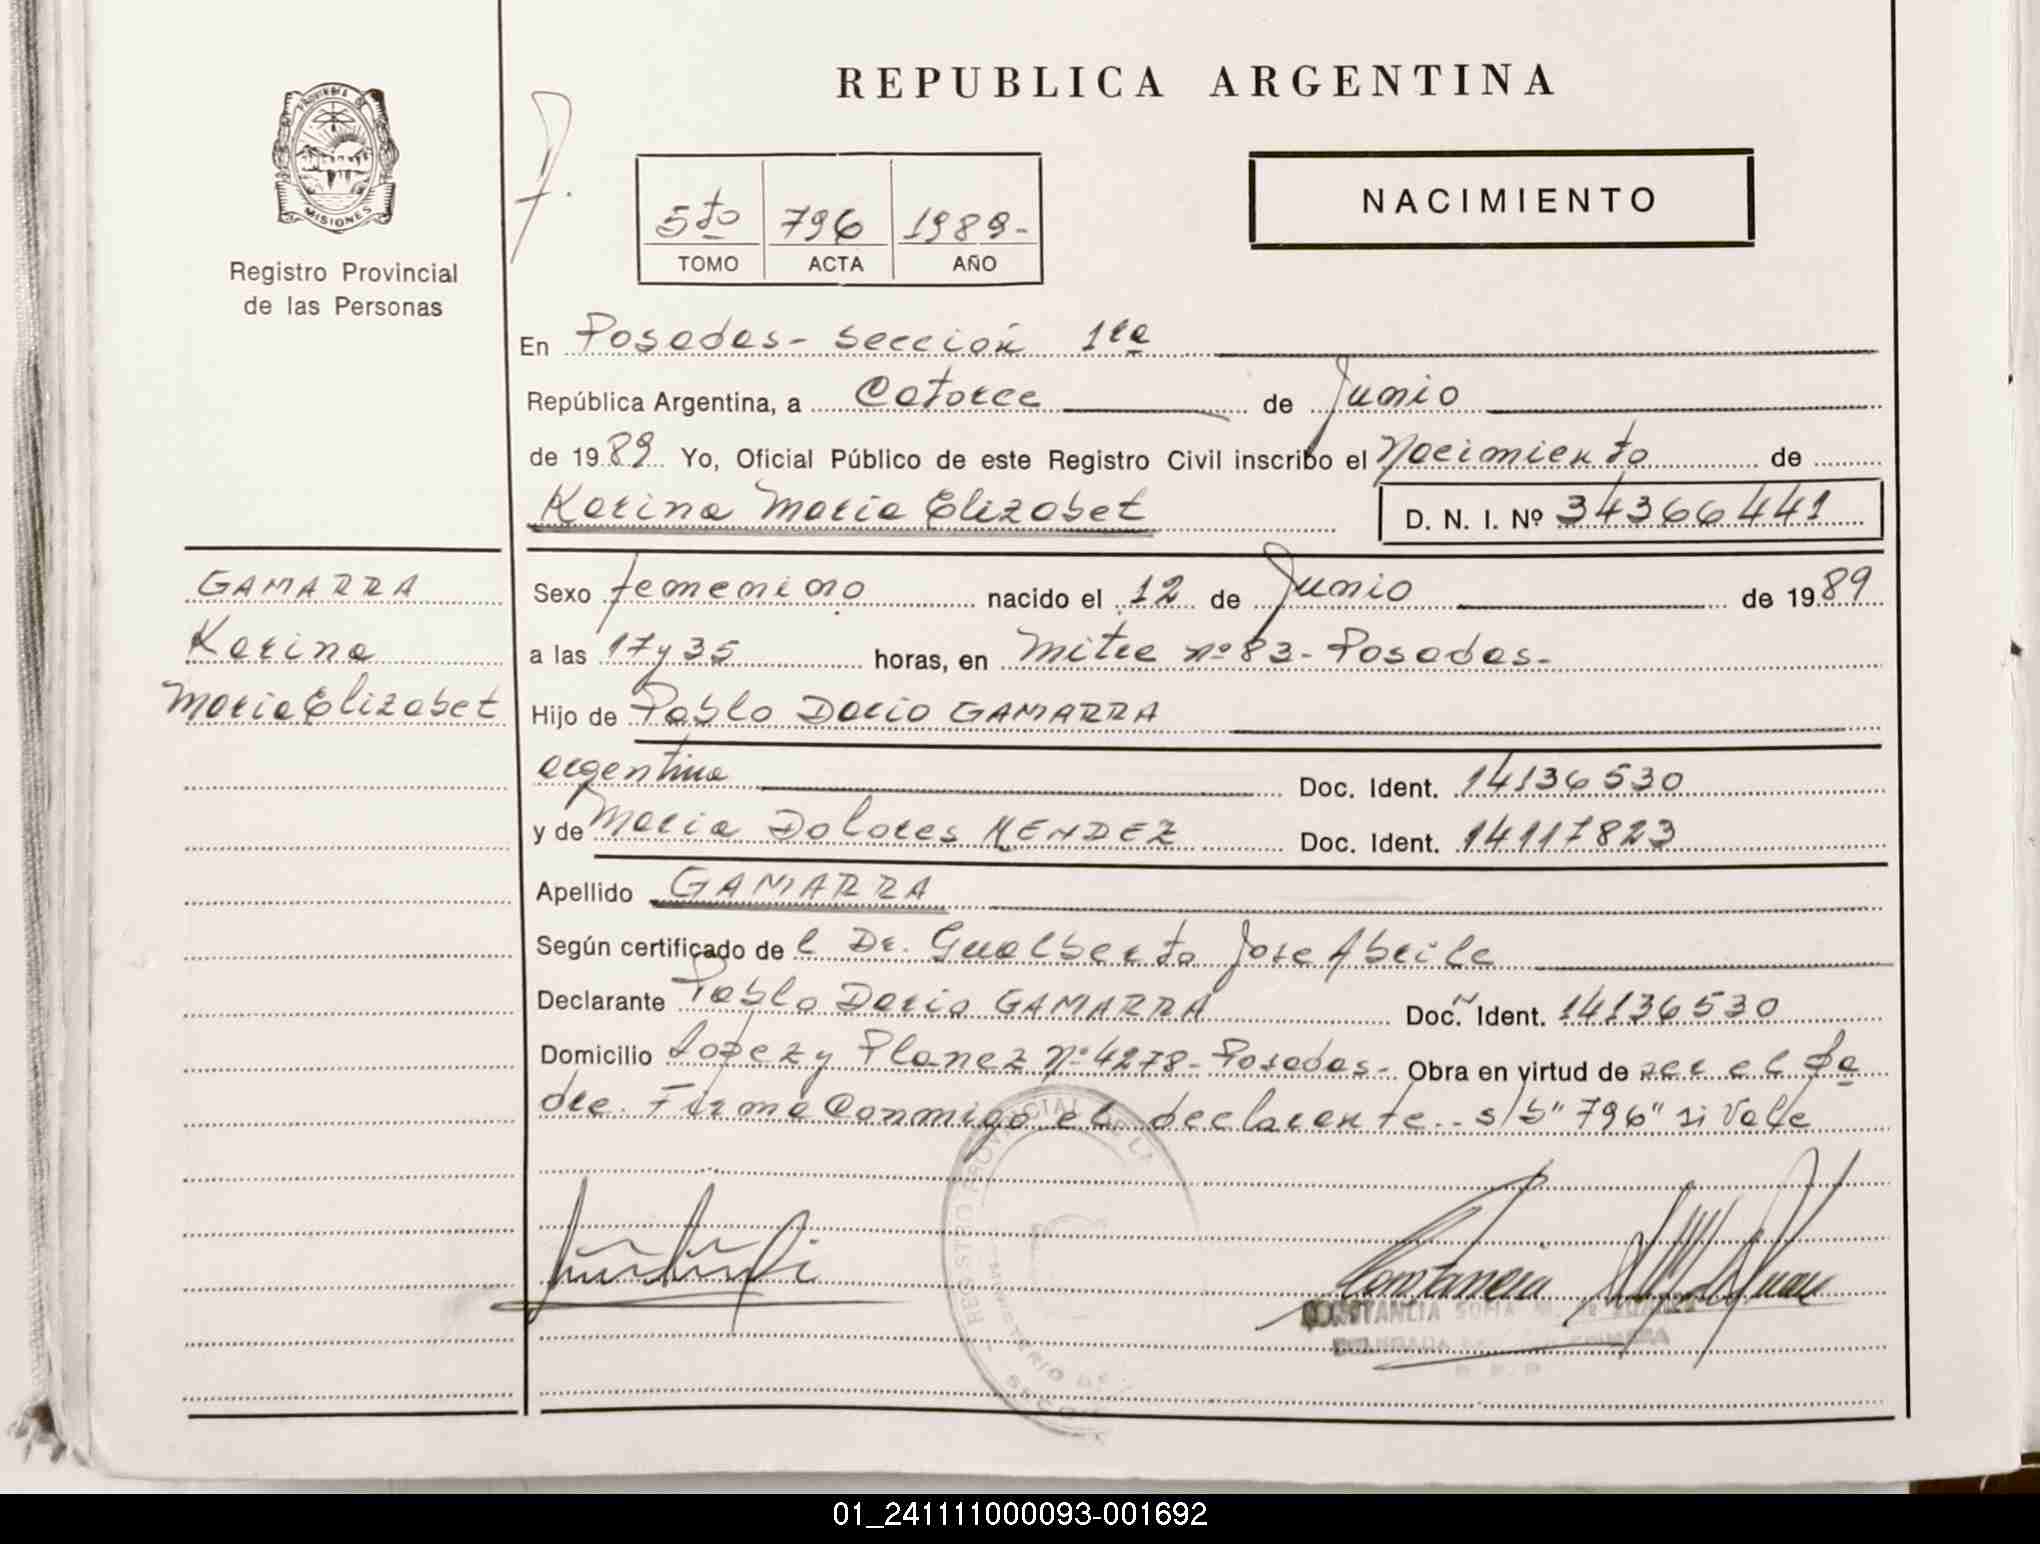 REPUBLICA ARGENTINA
PROVINCIA DE
MISIONES
Registro Provincial
de las Personas
5to 796 1989-
TOMO ACTA AÑO
NACIMIENTO
En Posadas- Sección 1ra
República Argentina, a Catorce de Junio
de 1989 Yo, Oficial Público de este Registro Civil inscribo el Nacimiento de
Karina Maria Elizabet D. N. I. Nº 34366441
GAMARRA
Karina
Maria Elizabet
Sexo femenino nacido el 12 de Junio de 1989
a las 17 y 35 horas, en Mitre nº 83- Posadas-
Hijo de Pablo Dario GAMARRA
argentina Doc. Ident. 14136530
y de Maria Dolores MENDEZ Doc. Ident. 14117823
Apellido GAMARRA
Según certificado de l Dr. Gualberto Jose Abrile
Declarante Pablo Dario GAMARRA Doc. Ident. 14136530
Domicilio Lopez y Planez Nº 4278- Posadas- Obra en virtud de ser el Pa
dre. Firma Conmigo el declarante.- s/b "796" si Vale
CONSTANCIA SOFIA
01_241111000093-001692